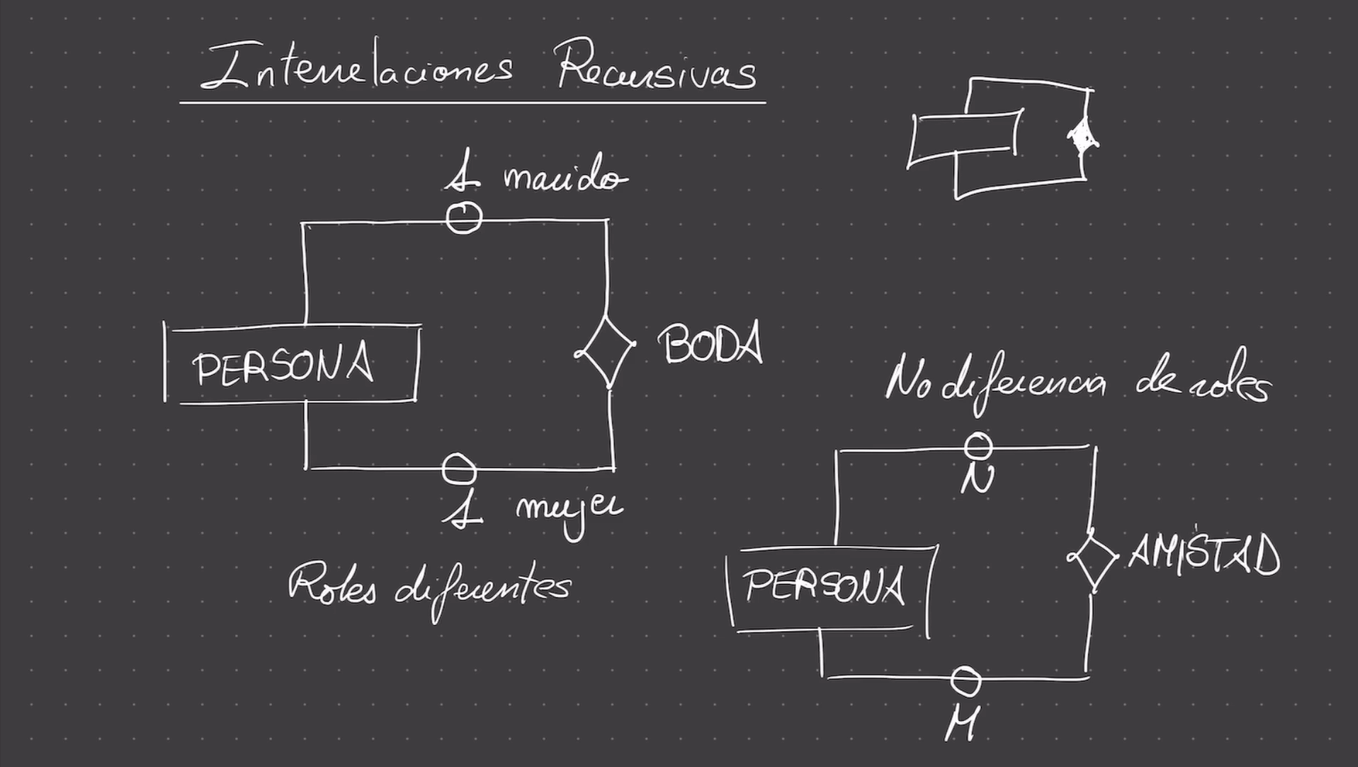 Interrelaciones Recursivas
1 marido
PERSONA
BODA
1 mujer
Roles diferentes
No diferencia de roles
N
PERSONA
AMISTAD
M